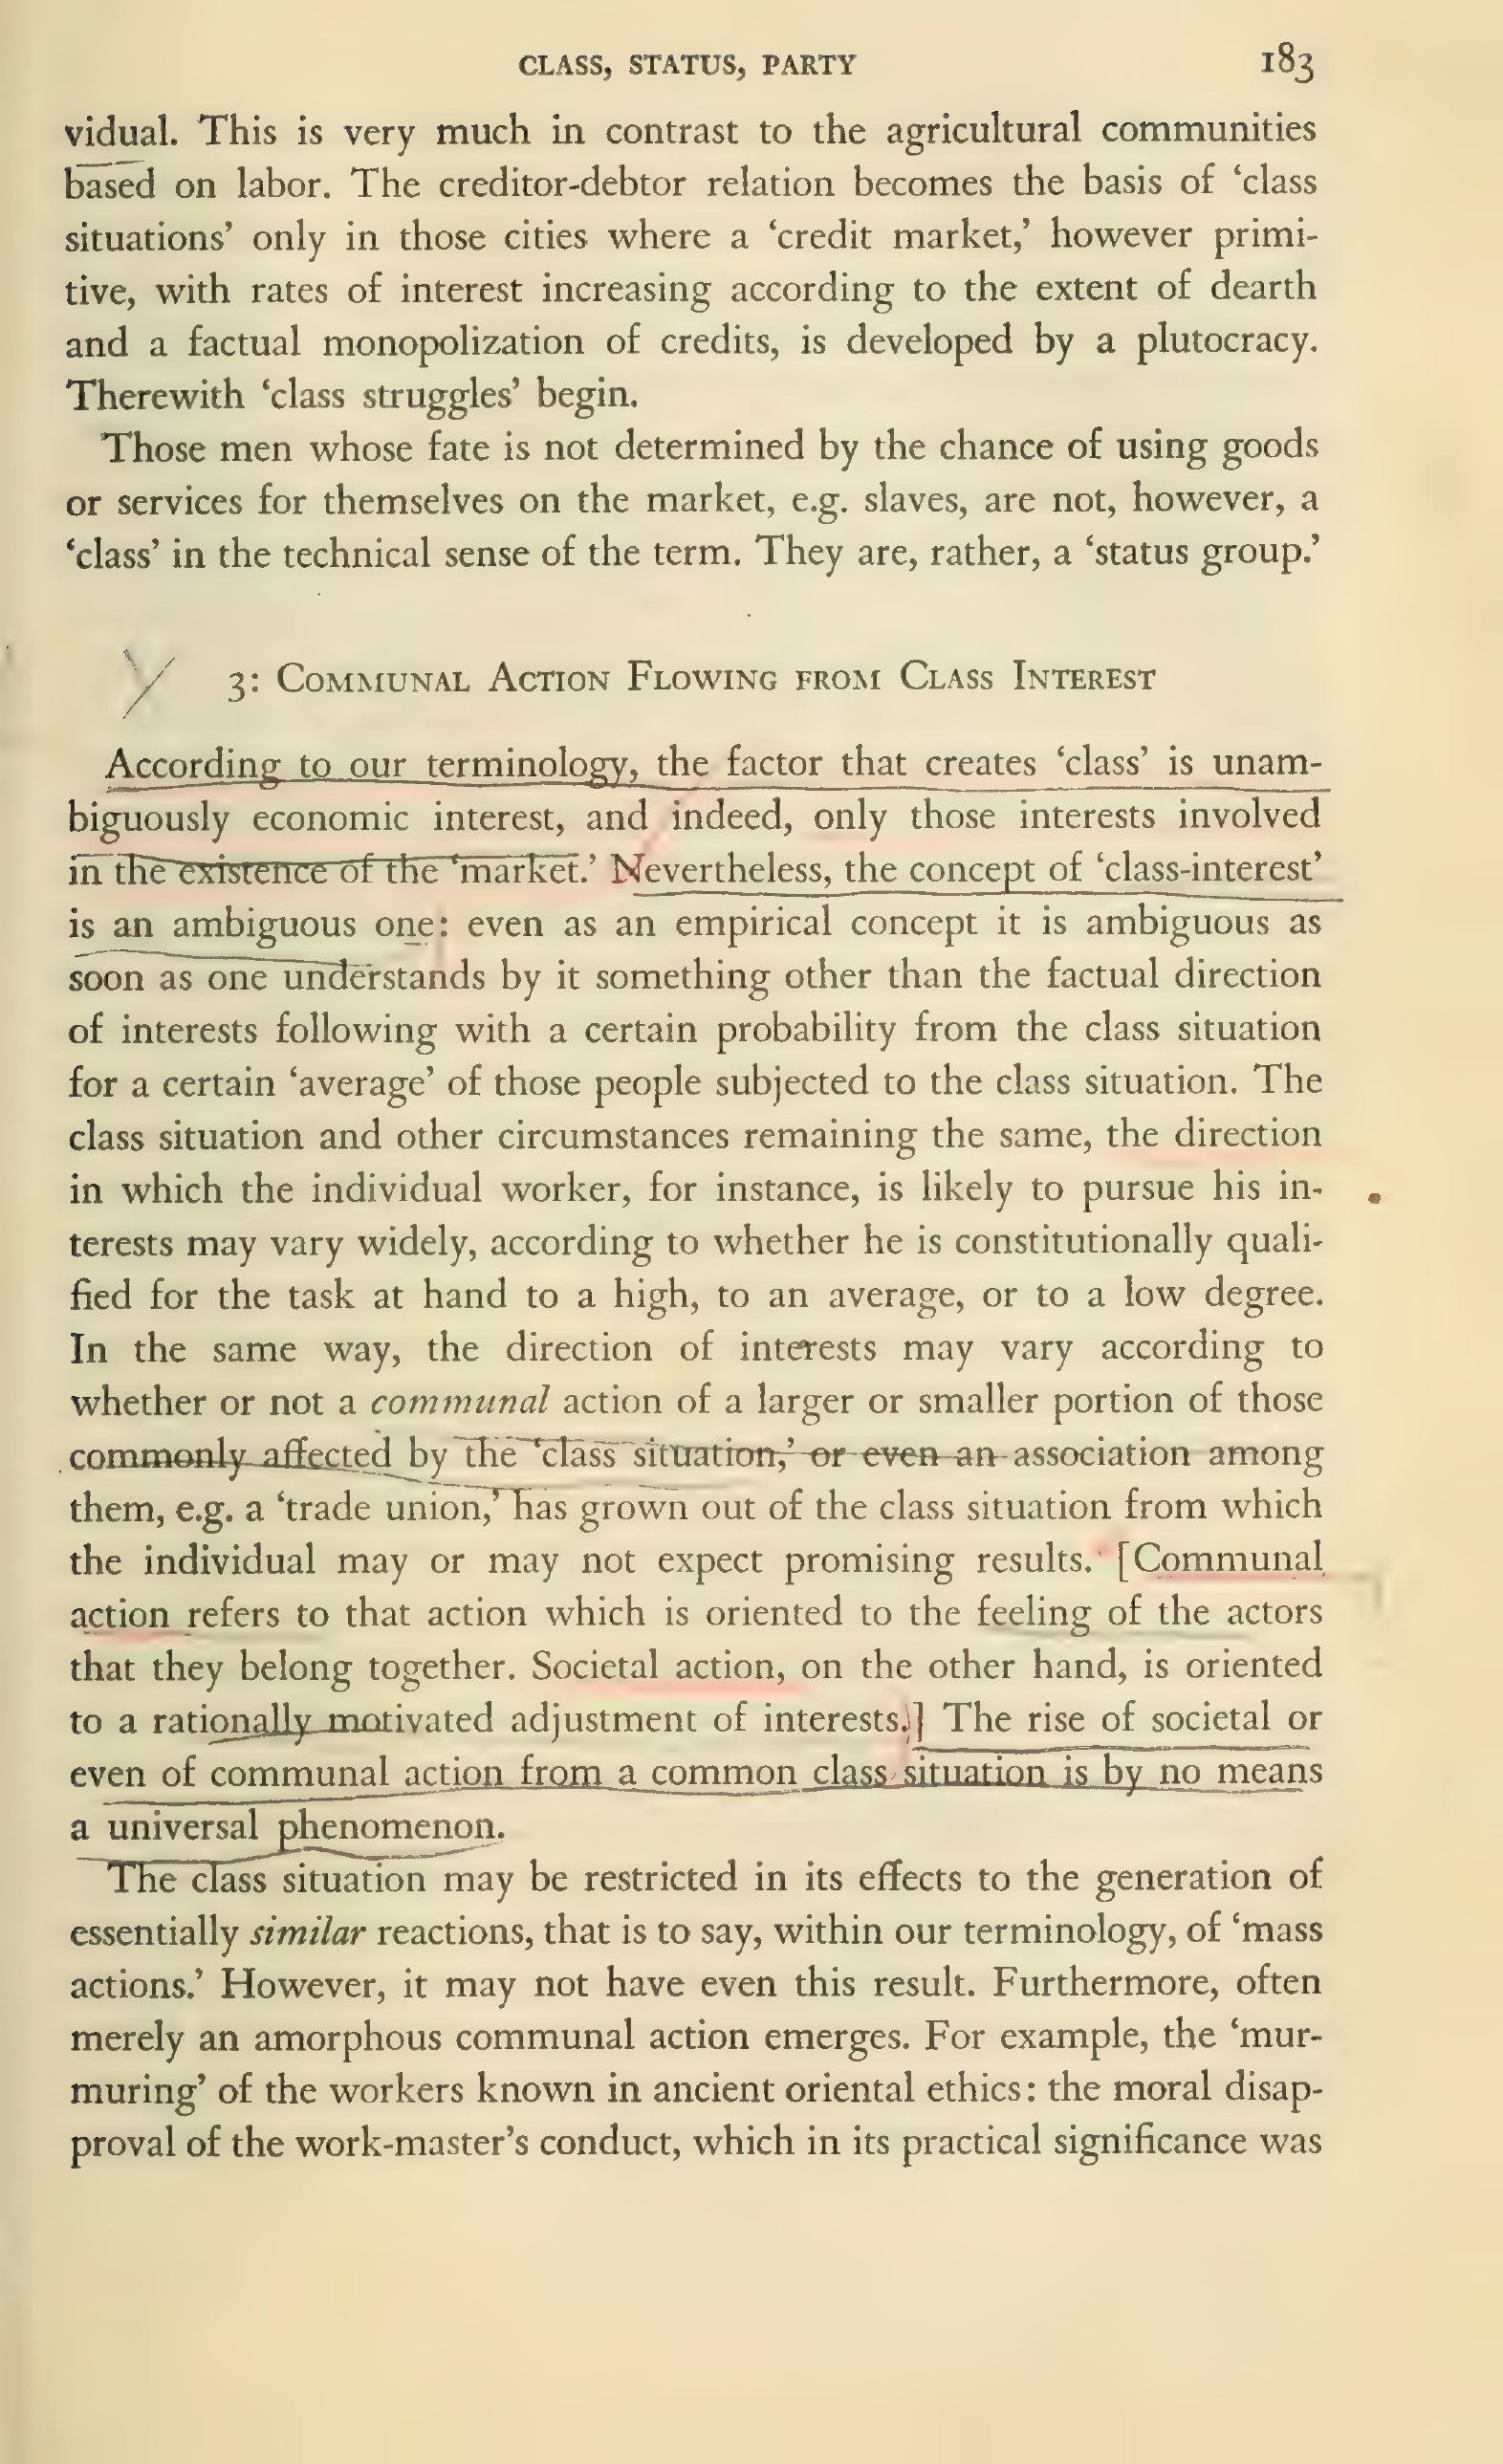 CLASS, STATUS, PARTY 183
vidual. This is very much in contrast to the agricultural communities
based on labor. The creditor-debtor relation becomes the basis of ‘class
situations’ only in those cities where a ‘credit market,’ however primi-
tive, with rates of interest increasing according to the extent of dearth
and a factual monopolization of credits, is developed by a plutocracy.
Therewith ‘class struggles’ begin.
Those men whose fate is not determined by the chance of using goods
or services for themselves on the market, e.g. slaves, are not, however, a
‘class’ in the technical sense of the term. They are, rather, a ‘status group.’
3: Communal Action Flowing from Class Interest
According to our terminology, the factor that creates ‘class’ is unam-
biguously economic interest, and indeed, only those interests involved
in the existence of the ‘market.’ Nevertheless, the concept of ‘class-interest’
is an ambiguous one: even as an empirical concept it is ambiguous as
soon as one understands by it something other than the factual direction
of interests following with a certain probability from the class situation
for a certain ‘average’ of those people subjected to the class situation. The
class situation and other circumstances remaining the same, the direction
in which the individual worker, for instance, is likely to pursue his in-
terests may vary widely, according to whether he is constitutionally quali-
fied for the task at hand to a high, to an average, or to a low degree.
In the same way, the direction of interests may vary according to
whether or not a communal action of a larger or smaller portion of those
commonly affected by the ‘class situation,’ or even an association among
them, e.g. a ‘trade union,’ has grown out of the class situation from which
the individual may or may not expect promising results. [Communal
action refers to that action which is oriented to the feeling of the actors
that they belong together. Societal action, on the other hand, is oriented
to a rationally motivated adjustment of interests.] The rise of societal or
even of communal action from a common class situation is by no means
a universal phenomenon.
The class situation may be restricted in its effects to the generation of
essentially similar reactions, that is to say, within our terminology, of ‘mass
actions.’ However, it may not have even this result. Furthermore, often
merely an amorphous communal action emerges. For example, the ‘mur-
muring’ of the workers known in ancient oriental ethics: the moral disap-
proval of the work-master’s conduct, which in its practical significance was